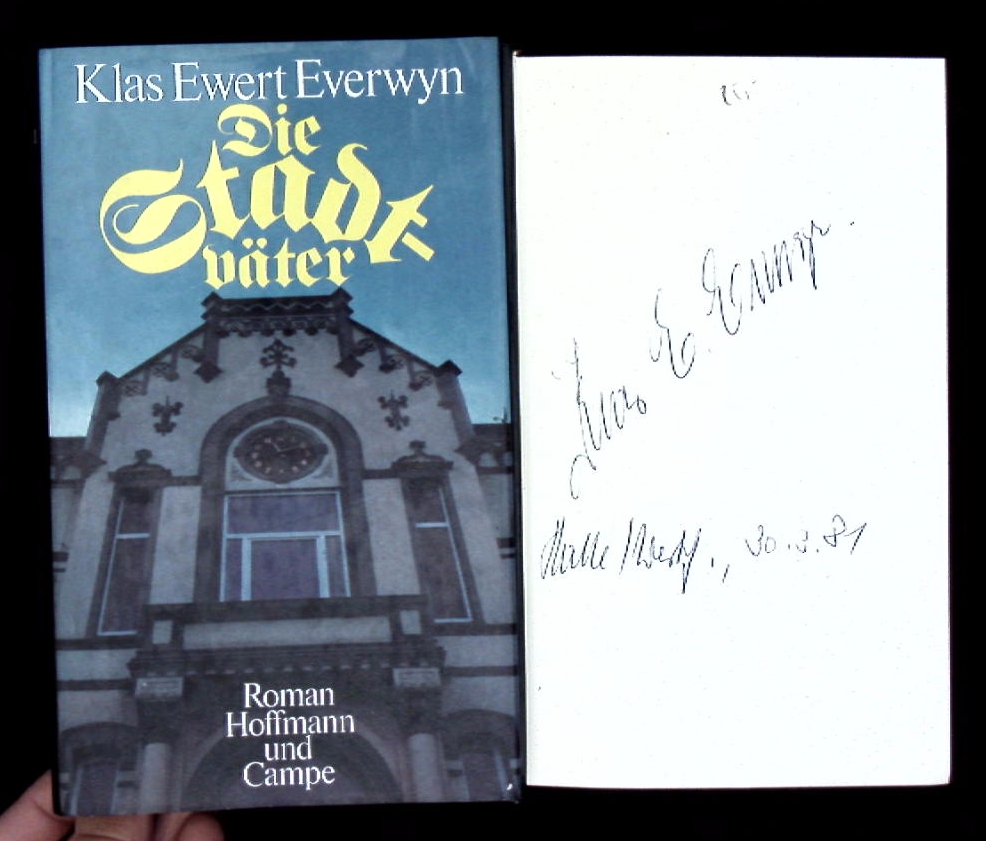 Klas Ewert Everwyn
Die
Stadt-
väter
Roman
Hoffmann
und
Campe
Klas E. Everwyn.
Halle/Westf., 30.3.81